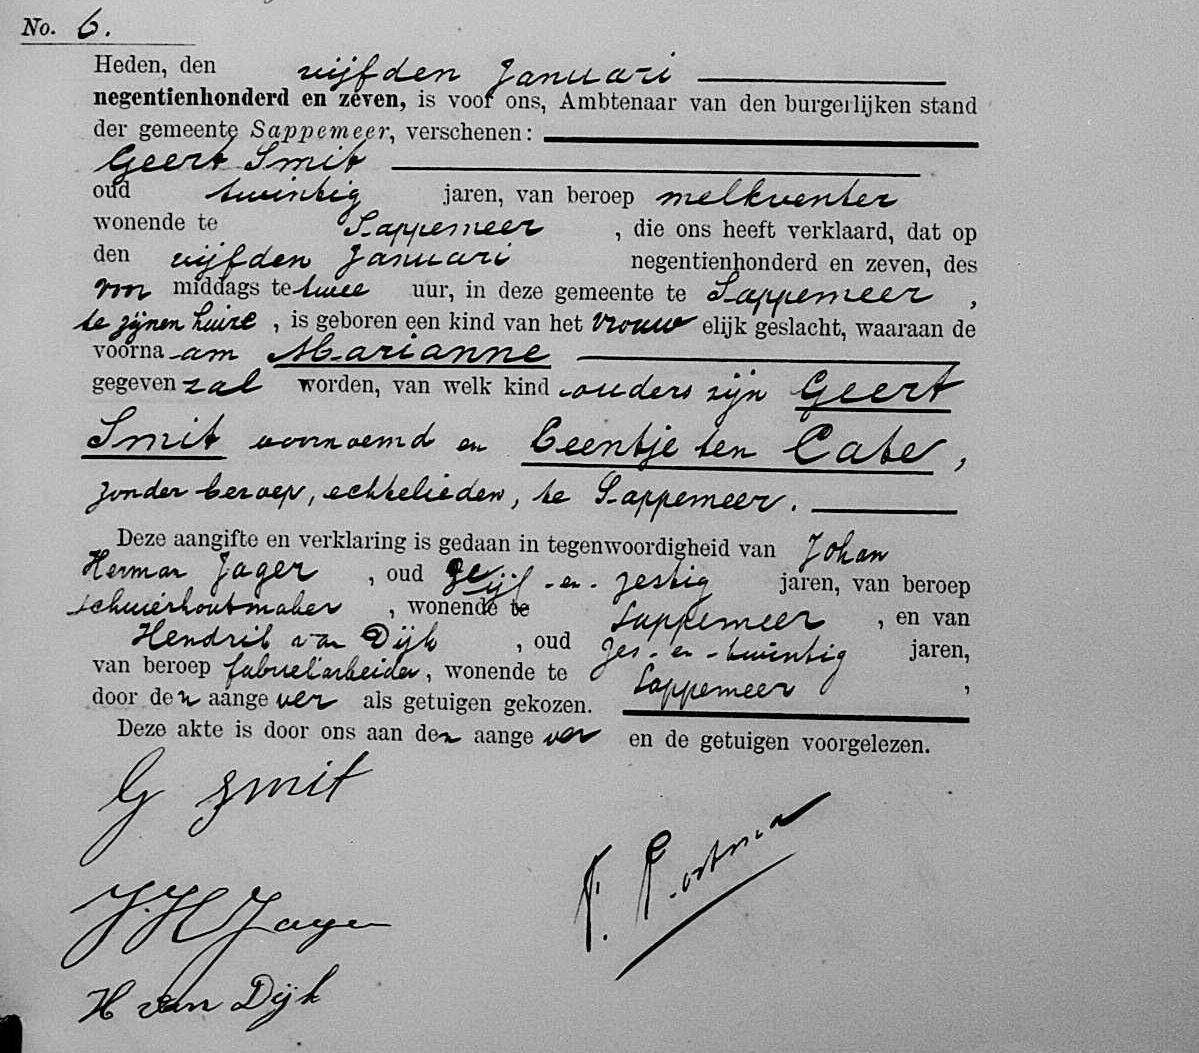 No. 6.
Heden, den vijfden Januari
negentienhonderd en zeven, is voor ons, Ambtenaar van den burgerlijken stand
der gemeente Sappemeer, verschenen:
Geert Smit
oud twintig jaren, van beroep melkventer
wonende te Sappemeer, die ons heeft verklaard, dat op
den vijfden Januari negentienhonderd en zeven, des
voor middags te twee uur, in deze gemeente te Sappemeer,
te zijnen huize, is geboren een kind van het vrouwelijk geslacht, waaraan de
voornaam Marianne
gegeven zal worden, van welk kind ouders zijn Geert
Smit voornoemd en Ceentje ten Cate,
zonder beroep, echtelieden, te Sappemeer.
Deze aangifte en verklaring is gedaan in tegenwoordigheid van Johan
Herman Jager, oud vijf-en-zestig jaren, van beroep
schuierhoutmaker, wonende te Sappemeer, en van
Hendrik van Dijk, oud zes-en-twintig jaren,
van beroep fabriekarbeider, wonende te Sappemeer,
door den aangever als getuigen gekozen.
Deze akte is door ons aan den aangever en de getuigen voorgelezen.
G Smit
F. Postma
J. H. Jager
H van Dijk